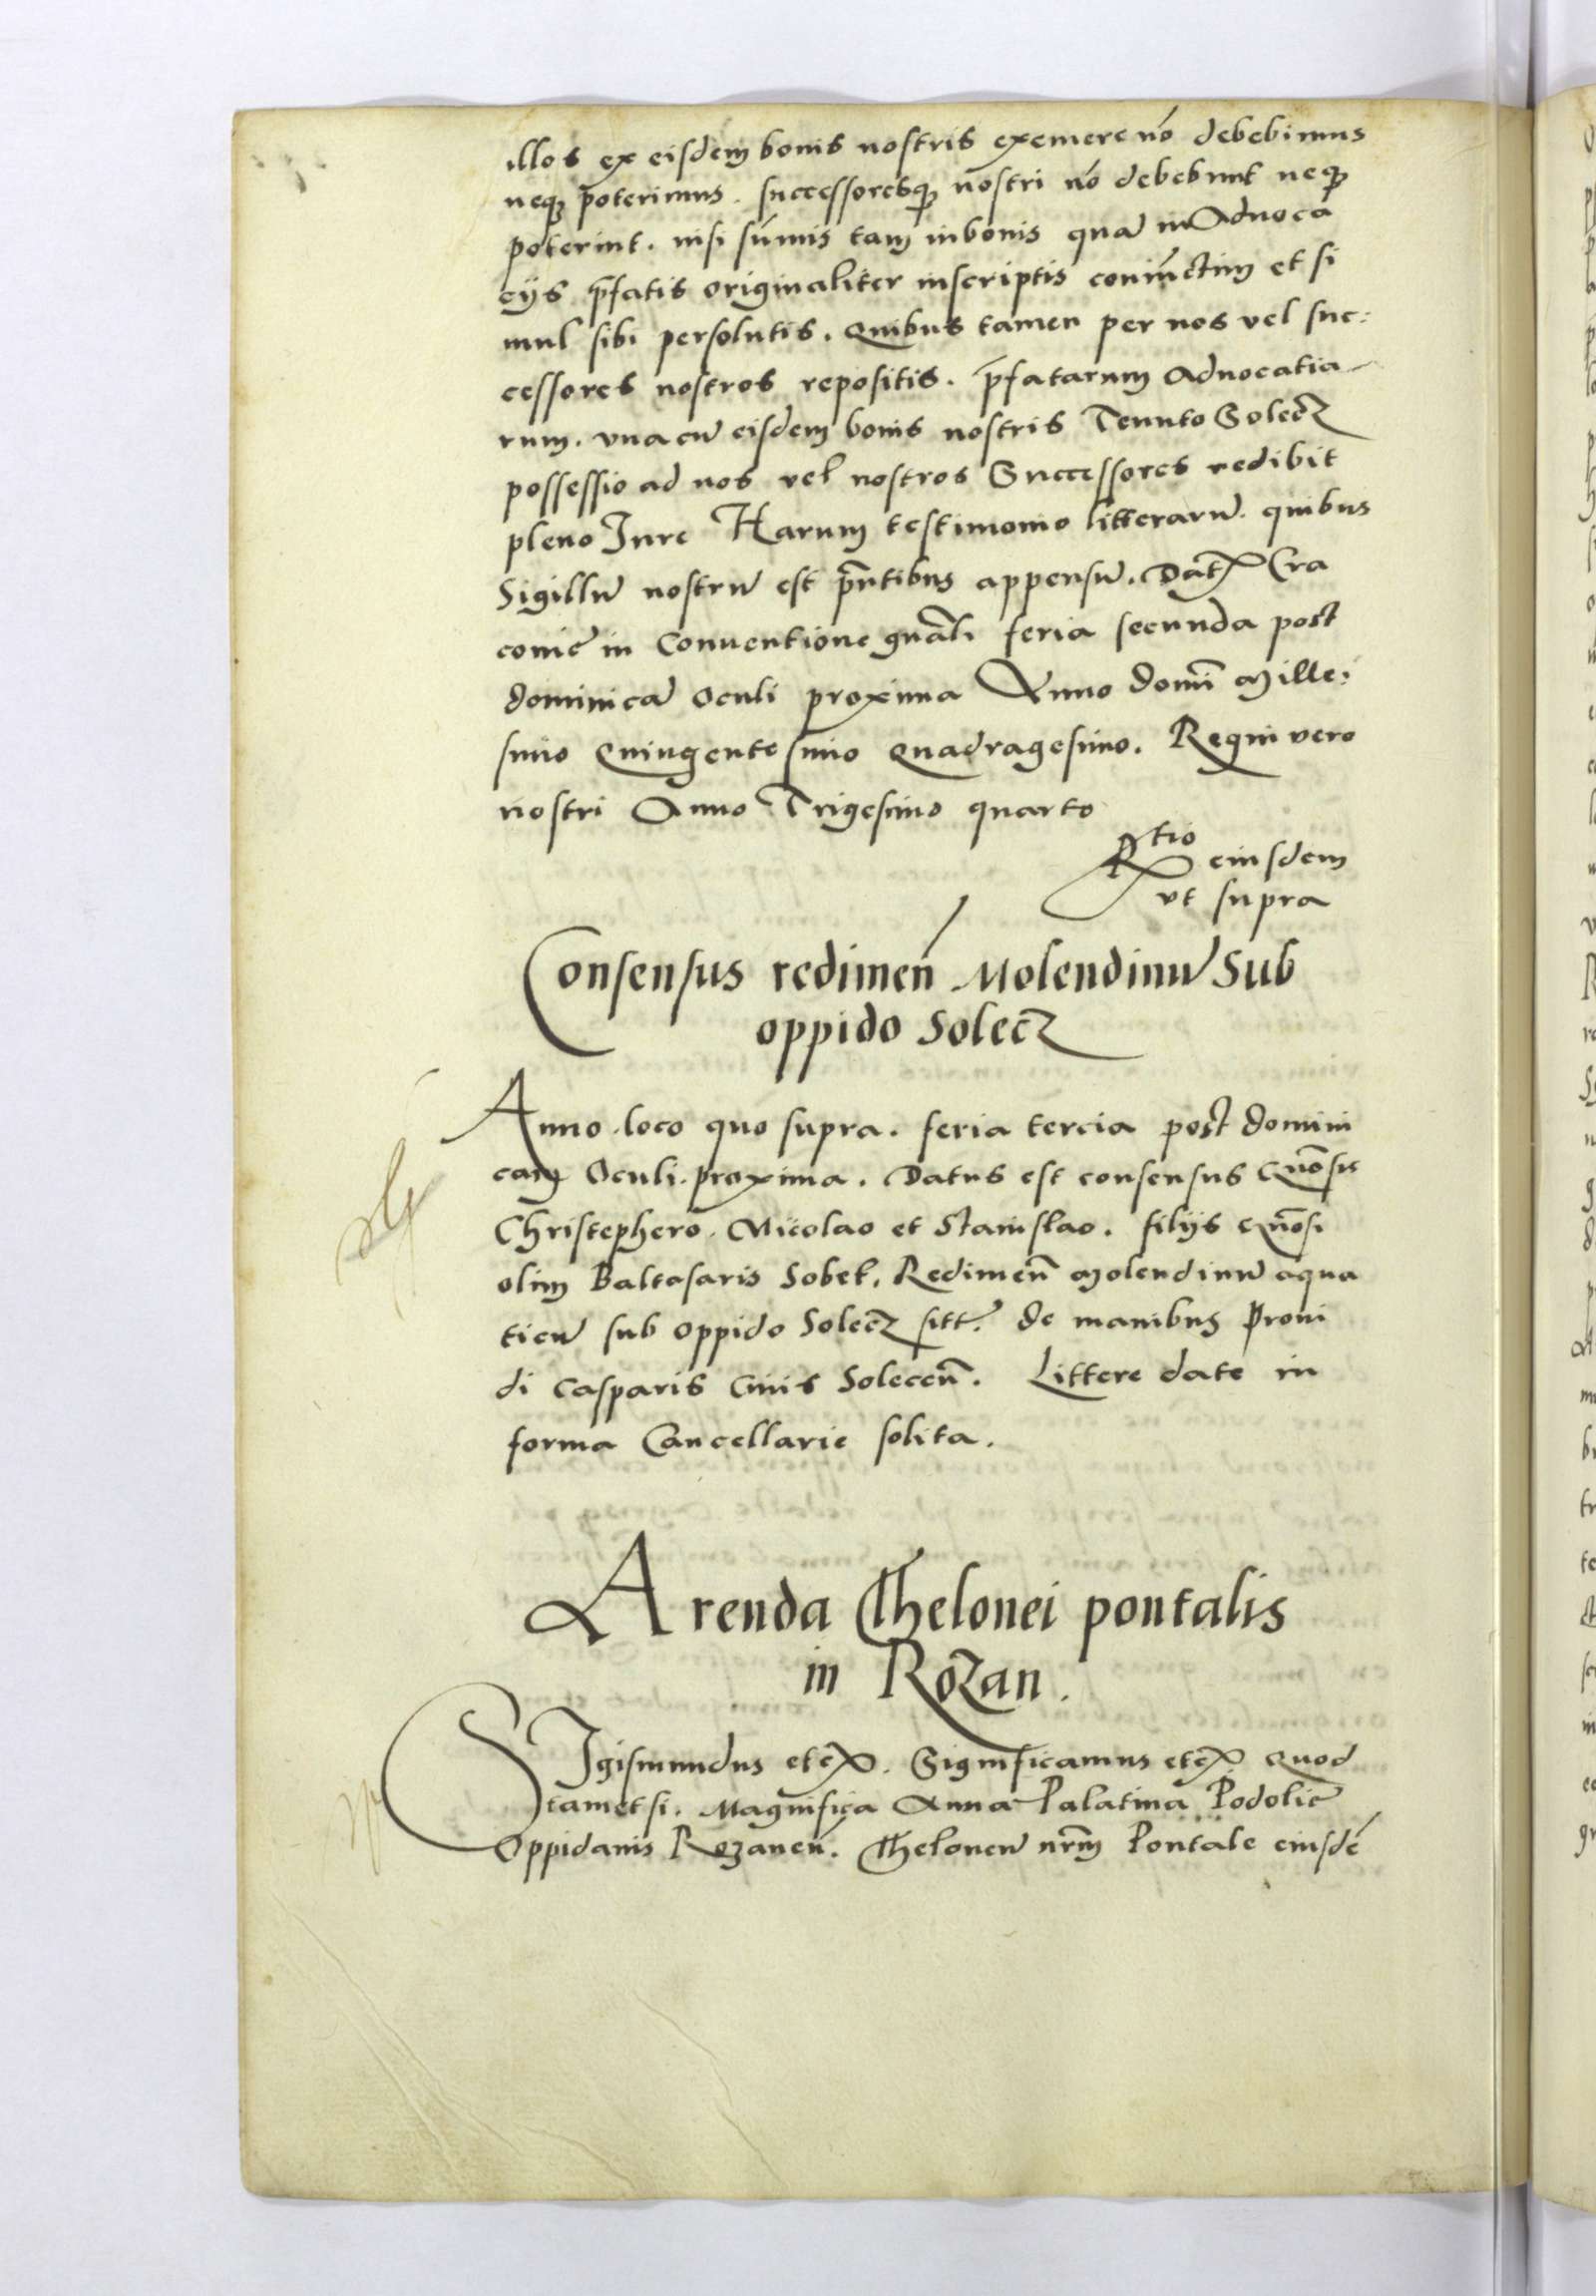 illos ex eisdem bonis nostris exemere nō debebimus
neqꝫ poterimus. successoresqꝫ nostri nō debebunt neqꝫ
poterint. nisi sūmis tam in bonis quā in Aduoca
cijs p̄fatis originaliter inscriptis coniūctim et si
mul sibi persolutis. Quibus tamen per nos vel suc:
cessores nostros repositis. p̄fatarum Aduocatia
rum. vna cū eisdem bonis nostris Tenuto Solecz
possessio ad nos vel nostros Successores redibit
pleno Jure Harum testimonio litterarū. quibus
Sigillū nostrū est p̄ntibus appensū. Dat̄ Cra
couie in Conuentione gn̄ali feria secunda post
dominicā Oculi proxima Anno domī Mille:
simo Quingentesimo Quadragesimo. Regni vero
nostri Anno Trigesimo quarto
Rtio eiusdem
vt supra
Consensus redimeń Molendinū Sub
oppido Solecz
Anno loco quo supra. feria tercia post domini
cam Oculi proxima. Datus est consensus Gn̄osis
Christophero. Nicolao et Stanislao. filijs Gn̄osi
olim Baltasaris Sobek. Redimeñ Molendinū aqua
ticū sub oppido Solecz sitt̄. de manibus Proui
di Casparis Ciuis Soleceñ. Littere date in
forma Cancellarie solita.
Arenda Thelonei pontalis
in Rozan.
SIgismundus etc. Significamus etc. quod
tametsi. Magnifica Anna Palatina Podolie
Oppidanis Rozaneń. Theloneū nr̄m Pontale eiusdē